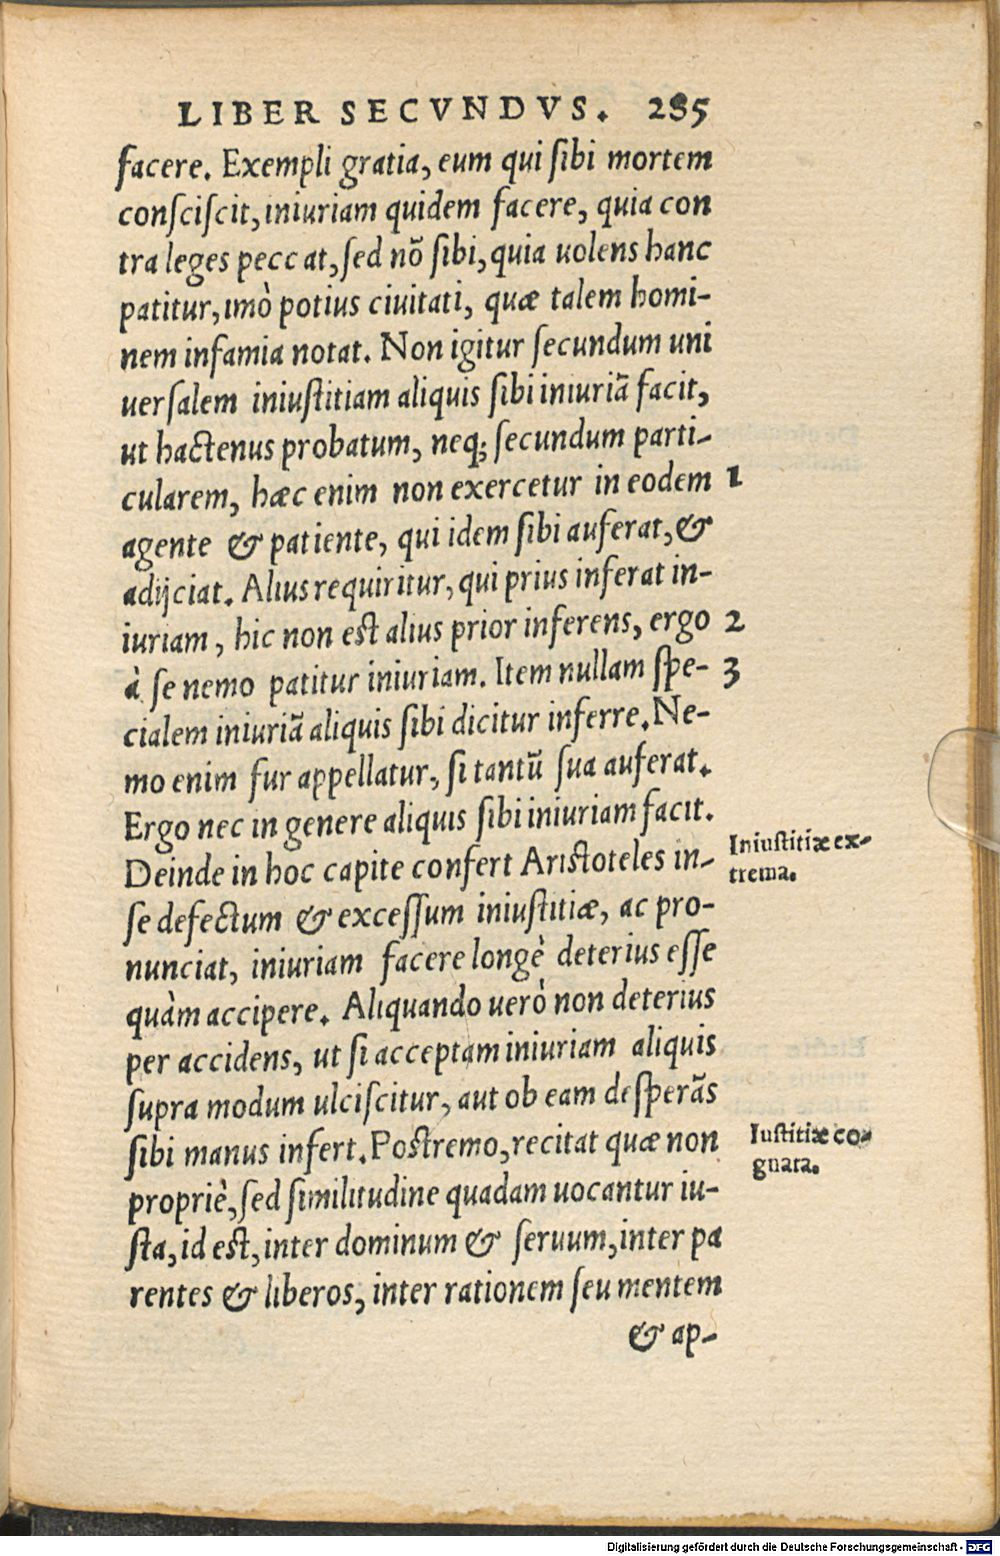 LIBER SECVNDVS. 285
facere. Exempli gratia, eum qui ſibi mortem
conſciſcit, iniuriam quidem facere, quia con
tra leges peccat, ſed nõ ſibi, quia uolens hanc
patitur, imò potius ciuitati, quæ talem homi-
nem infamia notat. Non igitur ſecundum uni
uerſalem iniuſtitiam aliquis ſibi iniuriã facit,
ut hactenus probatum, neq; ſecundum parti-
cularem, hæc enim non exercetur in eodem 1
agente & patiente, qui idem ſibi auferat, &
adijciat. Alius requiritur, qui prius inferat in-
iuriam, hic non eſt alius prior inferens, ergo 2
à ſe nemo patitur iniuriam. Item nullam ſpe- 3
cialem iniuriã aliquis ſibi dicitur inferre. Ne-
mo enim fur appellatur, ſi tantũ ſua auferat.
Ergo nec in genere aliquis ſibi iniuriam facit.
Iniuſtitiæ ex-
trema.
Deinde in hoc capite confert Ariſtoteles in-
ſe defectum & exceſſum iniuſtitiæ, ac pro-
nunciat, iniuriam facere longè deterius eſſe
quàm accipere. Aliquando uerò non deterius
per accidens, ut ſi acceptam iniuriam aliquis
ſupra modum ulciſcitur, aut ob eam deſperãs
ſibi manus infert. Poſtremo, recitat quæ non
Iuſtitiæ co-
gnata.
propriè, ſed ſimilitudine quadam uocantur iu-
ſta, id eſt, inter dominum & ſeruum, inter pa
rentes & liberos, inter rationem ſeu mentem
& ap-
Digitalisierung gefördert durch die Deutsche Forschungsgemeinschaft - DFG